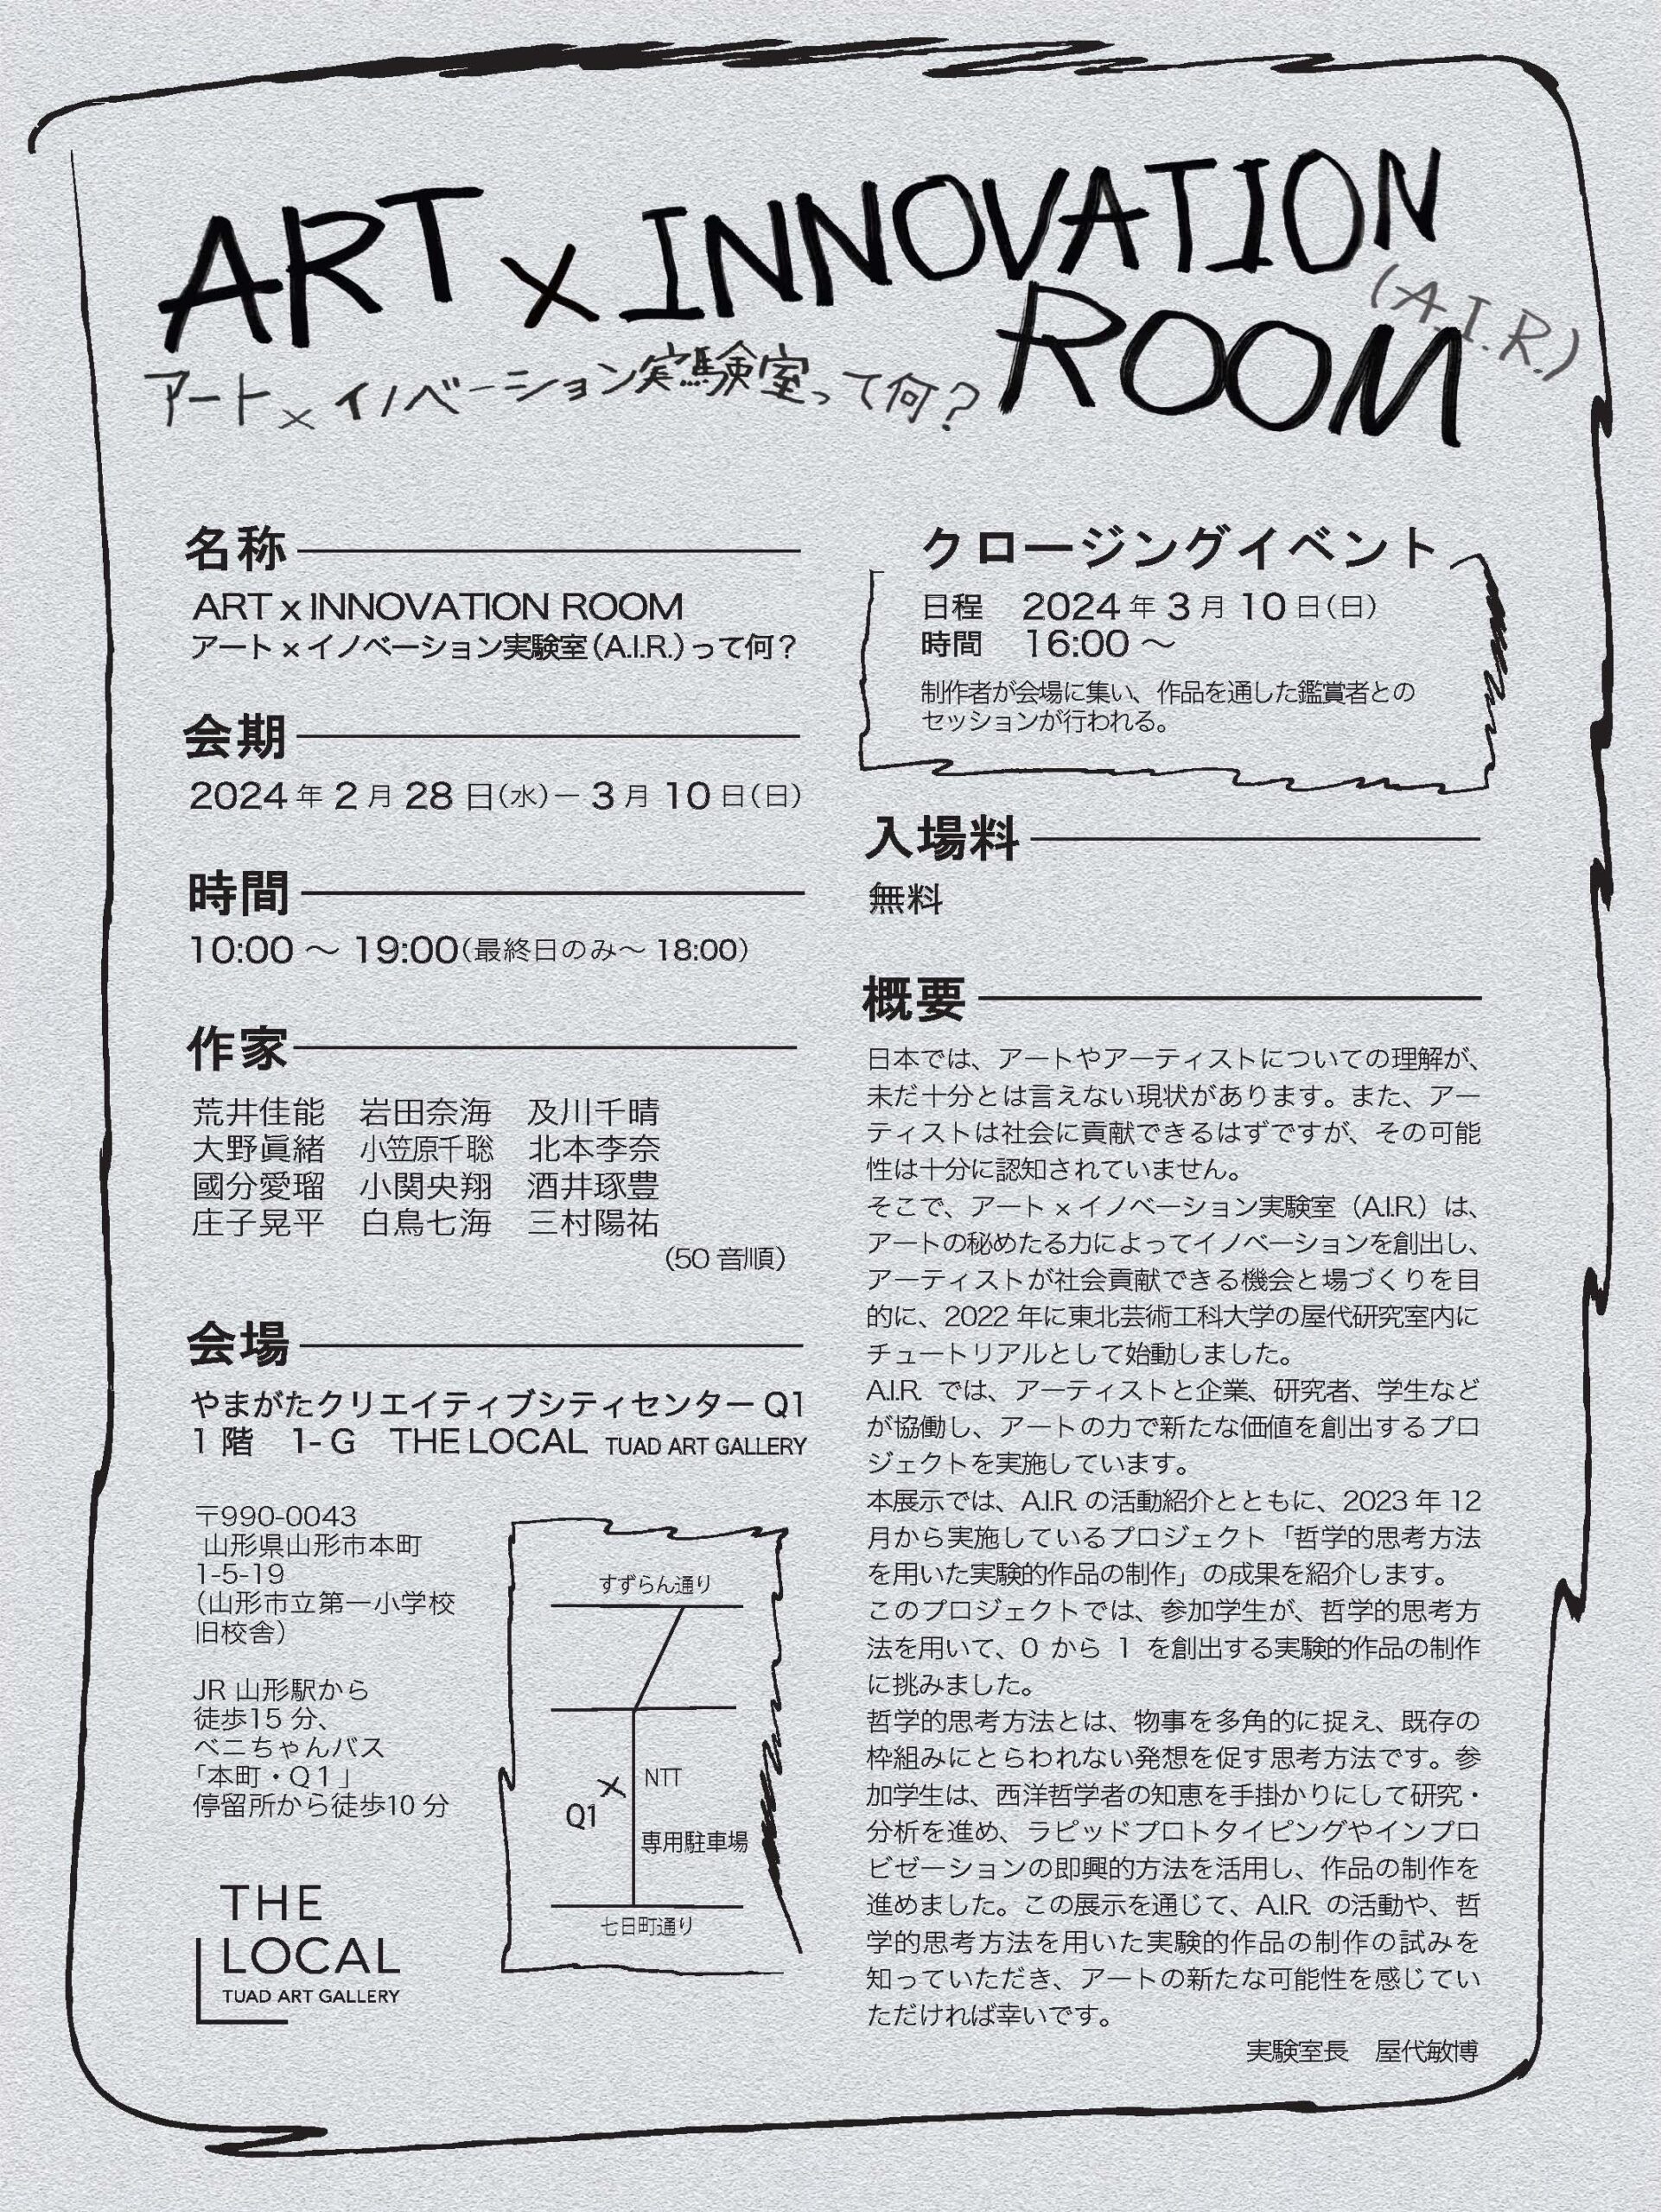 ART x INNOVATION
ROOM
(A.I.R.)
アート×イノベーション実験室って何？
名称
ART x INNOVATION ROOM
アート×イノベーション実験室（A.I.R.）って何？
会期
2024年2月28日（水）－3月10日（日）
時間
10:00～19:00（最終日のみ～18:00）
作家
荒井佳能　岩田奈海　及川千晴
大野眞緒　小笠原千聡　北本李奈
國分愛瑠　小関央翔　酒井琢豊
庄子晃平　白鳥七海　三村陽祐
（50音順）
会場
やまがたクリエイティブシティセンターQ1
1階　1-G　THE LOCAL TUAD ART GALLERY
〒990-0043
山形県山形市本町
1-5-19
（山形市立第一小学校
旧校舎）
JR山形駅から
徒歩15分、
ベニちゃんバス
「本町・Q1」
停留所から徒歩10分
すずらん通り
NTT
Q1
専用駐車場
七日町通り
THE
LOCAL
TUAD ART GALLERY
クロージングイベント
日程　2024年3月10日（日）
時間　16:00～
制作者が会場に集い、作品を通した鑑賞者との
セッションが行われる。
入場料
無料
概要
日本では、アートやアーティストについての理解が、
未だ十分とは言えない現状があります。また、アー
ティストは社会に貢献できるはずですが、その可能
性は十分に認知されていません。
そこで、アート×イノベーション実験室（A.I.R.）は、
アートの秘めたる力によってイノベーションを創出し、
アーティストが社会貢献できる機会と場づくりを目
的に、2022年に東北芸術工科大学の屋代研究室内に
チュートリアルとして始動しました。
A.I.R. では、アーティストと企業、研究者、学生など
が協働し、アートの力で新たな価値を創出するプロ
ジェクトを実施しています。
本展示では、A.I.R. の活動紹介とともに、2023年12
月から実施しているプロジェクト「哲学的思考方法
を用いた実験的作品の制作」の成果を紹介します。
このプロジェクトでは、参加学生が、哲学的思考方
法を用いて、0 から 1 を創出する実験的作品の制作
に挑みました。
哲学的思考方法とは、物事を多角的に捉え、既存の
枠組みにとらわれない発想を促す思考方法です。参
加学生は、西洋哲学者の知恵を手掛かりにして研究・
分析を進め、ラピッドプロトタイピングやインプロ
ビゼーションの即興的方法を活用し、作品の制作を
進めました。この展示を通じて、A.I.R. の活動や、哲
学的思考方法を用いた実験的作品の制作の試みを
知っていただき、アートの新たな可能性を感じてい
ただければ幸いです。
実験室長　屋代敏博